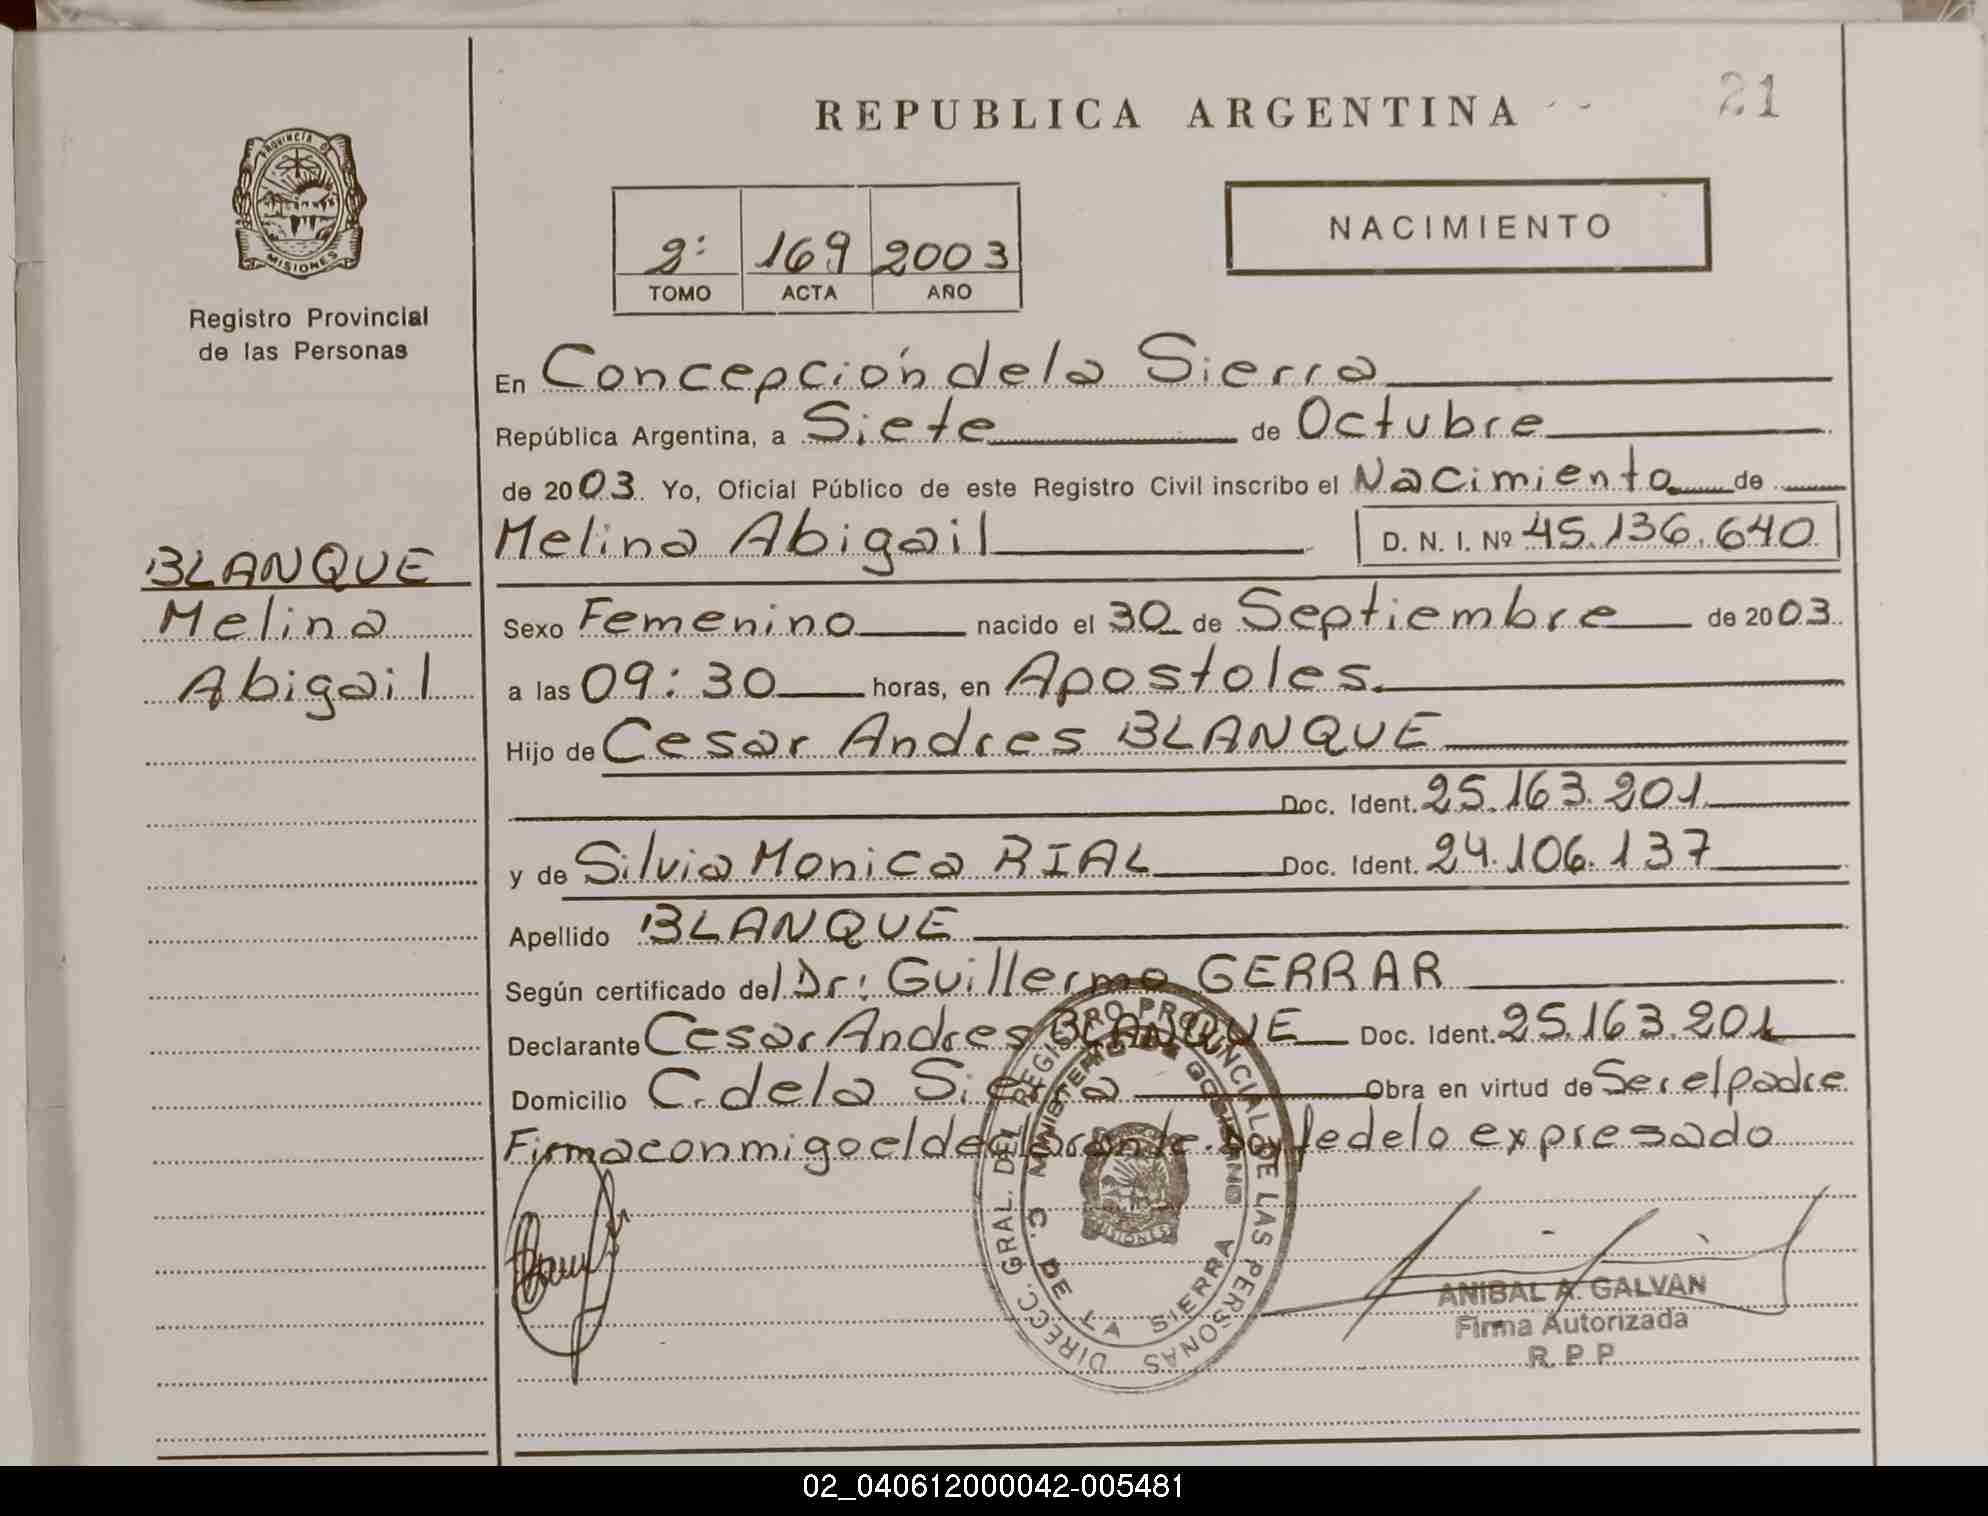 REPUBLICA ARGENTINA
21
PROVINCIA DE
MISIONES
Registro Provincial
de las Personas
2º 169 2003
TOMO ACTA AÑO
NACIMIENTO
En Concepción de la Sierra
República Argentina, a Siete de Octubre
de 2003. Yo, Oficial Público de este Registro Civil inscribo el Nacimiento de
Melina Abigail D. N. I. Nº 45.136.640
BLANQUE
Melina
Abigail
Sexo Femenino nacido el 30 de Septiembre de 2003.
a las 09:30 horas, en Apostoles.
Hijo de Cesar Andres BLANQUE
Doc. Ident. 25.163.201
y de Silvia Monica RIAL Doc. Ident. 24.106.137
Apellido BLANQUE
Según certificado del Dr: Guillermo GERRAR
Declarante Cesar Andres BLANQUE Doc. Ident. 25.163.201
Domicilio C. de la Sierra Obra en virtud de Ser el padre
Firma conmigo el declarante. Doy fe de lo expresado
DIRECC. GRAL. DEL REGISTRO PROVINCIAL DE LAS PERSONAS
MINISTERIO DE GOBIERNO
C. DE LA SIERRA
MISIONES
ANIBAL A. GALVAN
Firma Autorizada
R. P. P.
02_040612000042-005481